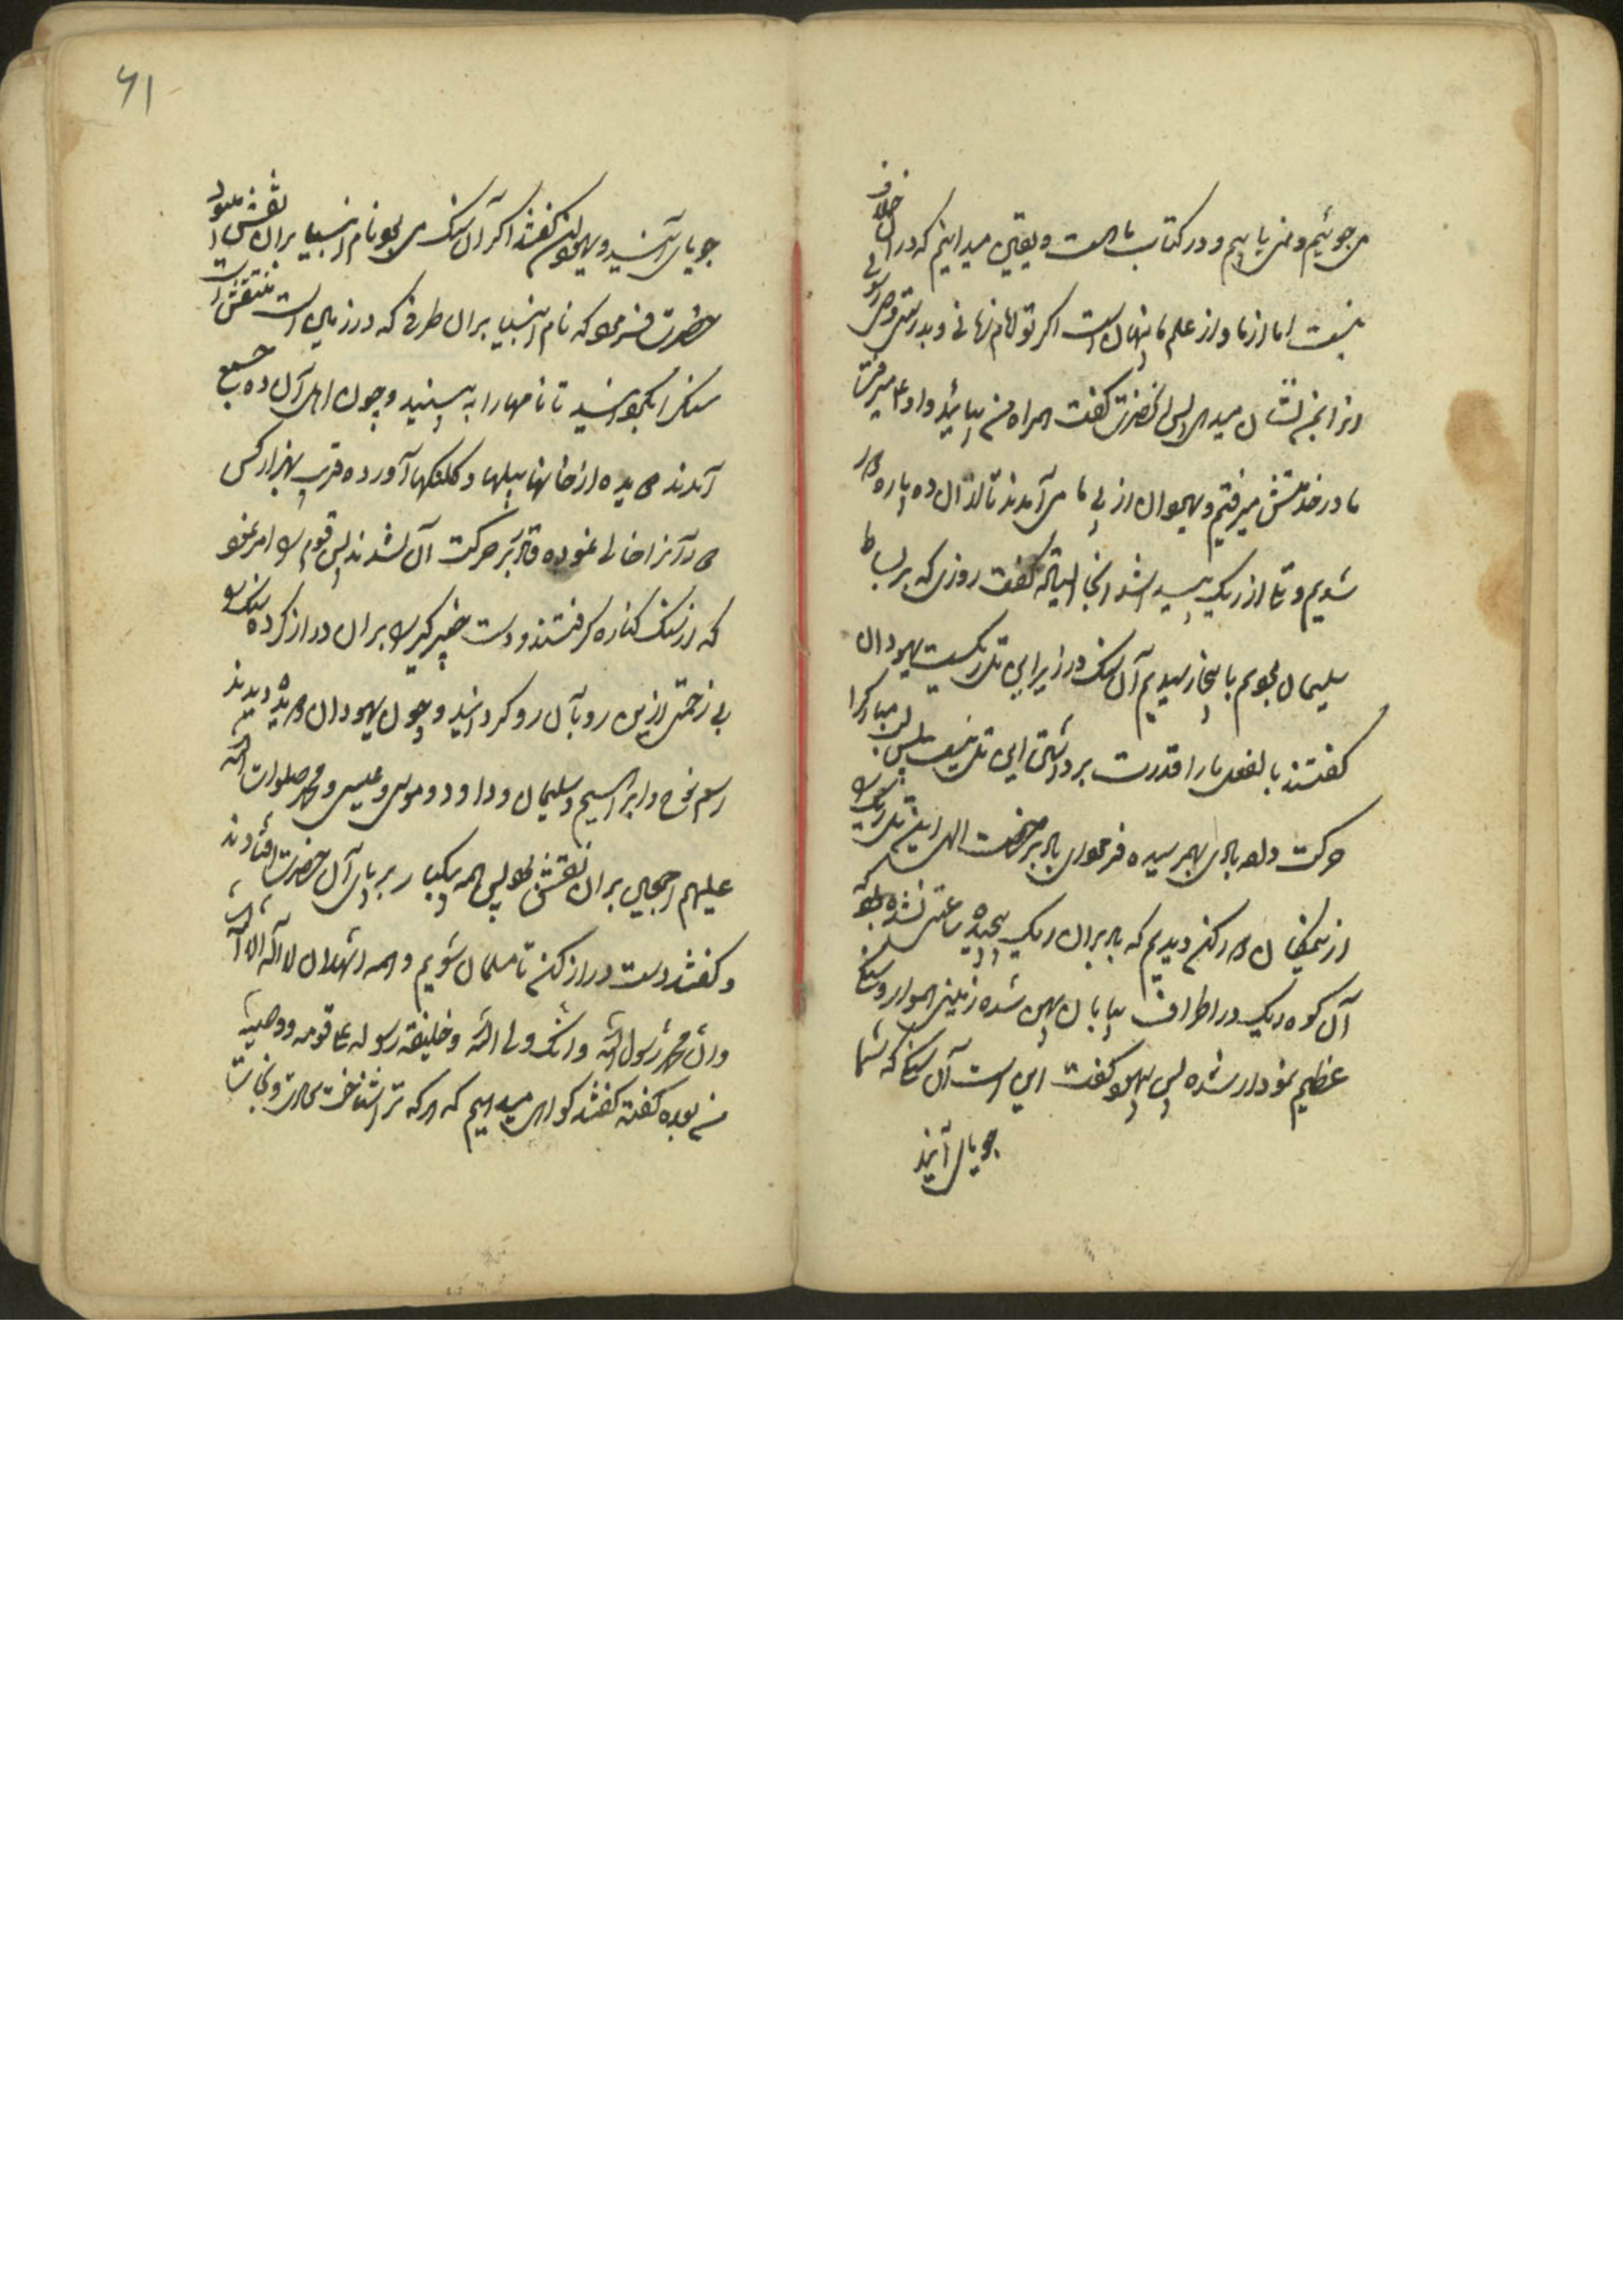 می جوئیم و نمی یابیم و در کتاب ما هست و یقین میدانیم که در آن خلاف
نیست اما از ما و از علم ما پنهان است اگر تو امام زمانی و بدرستی وصی رسولی
از اینجم نشان میدهی پس آنحضرت گفت همراه من بیائید و او ع میرفت
ما در خدمتش میرفتیم و یهودان از پی ما می آمدند تا از آن ده پاره دور
شدیم و تلی از ریک پیدا شد آنجا ایستاده گفت روزی که بر بساط
سلیمان بودیم باینجا رسیدیم آن سنک در زیر این تل ریکست یهودان
گفتند بالفعل ما را قدرت برداشتن این تل نیست پس لب مبارک را
حرکت داد بادی بهم رسیده فرمود ای باد برخصت الهی این تل ریک را
از سنک دور کن دیدیم که باد بر آن ریک پیچیده ساعتی نشده بود که
آن کوه ریک در اطراف بیابان پهن شده زمین هموار و سنگی
عظیم نمودار شده پس یهود گفت این است آن سنگی که شما
جویای آنید
۶۱
جویای آنید و یهودان گفتند اگر آن سنک می بود نام انبیا بر آن نقش میبود
حضرت فرمود که نام انبیا بر آن طرفی که در زمین است منتقش است
سنک را بگردانید تا نامها را به بینید و چون اهل آن ده جمیع
آمدند دویده از خانها بیلها و کلنکها آورده قریب بهزار کس
دور آنرا خالی نموده قادر بر حرکت آن نشدند پس قوم را امر نمود
که از سنک کناره گرفتند و دست خیبرگیر را بر آن دراز کرده سنک را
بی زحمتی از این رو بآن رو گردانید و چون یهودان دویده دیدند
اسم نوح و ابراهیم و سلیمان و داود و موسی و عیسی و محمد صلوات الله
علیهم اجمعین بر آن نقش بود پس همه یکبار بر پای آن حضرت افتادند
و گفتند دست دراز کن تا مسلمان شویم و همه اشهد ان لا اله الا الله
و ان محمد رسول الله و انک ولی الله و خلیفة رسوله علی قومه و وصیه
من بعده گفته گفتند گواهی میدهیم که هر که ترا شناخت سعادت و نجات